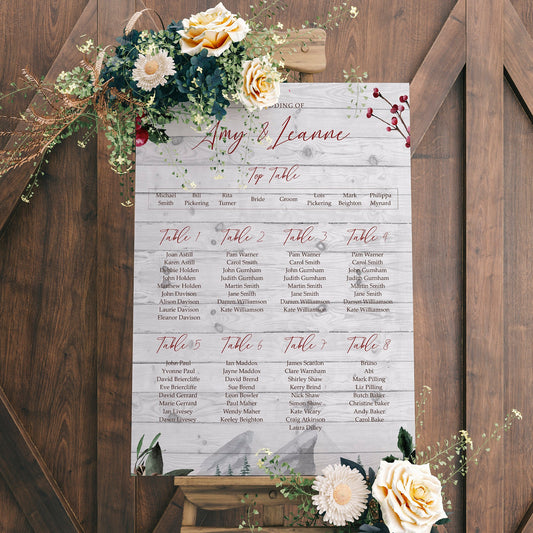 WEDDING OF
Amy & Leanne
Top Table
Michael
Smith
Bill
Pickering
Rita
Turner
Bride
Groom
Lois
Pickering
Mark
Beighton
Philippa
Mynard
Table 1
Joan Astill
Karen Astill
Debbie Holden
John Holden
Matthew Holden
John Davison
Alison Davison
Laurie Davison
Eleanor Davison
Table 2
Pam Warner
Carol Smith
John Gurnham
Judith Gurnham
Martin Smith
Jane Smith
Darren Williamson
Kate Williamson
Table 3
Pam Warner
Carol Smith
John Gurnham
Judith Gurnham
Martin Smith
Jane Smith
Darren Williamson
Kate Williamson
Table 4
Pam Warner
Carol Smith
John Gurnham
Judith Gurnham
Martin Smith
Jane Smith
Darren Williamson
Kate Williamson
Table 5
John Paul
Yvonne Paul
David Briercliffe
Eve Briercliffe
David Gerrard
Marie Gerrard
Ian Livesey
Dawn Livesey
Table 6
Ian Maddox
Jayne Maddox
David Brend
Sue Brend
Leon Bowler
Paul Maher
Wendy Maher
Keeley Beighton
Table 7
James Scanlon
Clare Warnham
Shirley Shaw
Kerry Brind
Nick Shaw
Simon Shaw
Kate Vicary
Craig Atkins
Laura Dilley
Table 8
Bruno
Abi
Mark Pilling
Liz Pilling
Butch Baker
Christine Baker
Andy Baker
Carol Bake